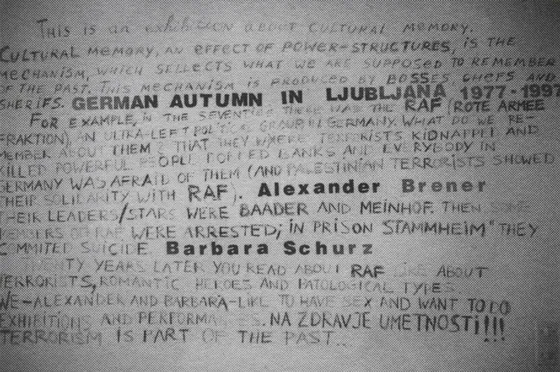 THIS IS AN EXHIBITION ABOUT CULTURAL MEMORY.
CULTURAL MEMORY, AN EFFECT OF POWER-STRUCTURES, IS THE
MECHANISM, WHICH SELLECTS WHAT WE ARE SUPPOSED TO REMEMBER
OF THE PAST. THIS MECHANISM IS PRODUCED BY BOSSES, CHEFS AND
SHERIFS. GERMAN AUTUMN IN LJUBLJANA 1977-1997
FOR EXAMPLE, IN THE SEVENTIES THERE WAS THE RAF (ROTE ARMEE
FRAKTION), AN ULTRA-LEFT POLITICAL GROUP IN GERMANY. WHAT DO WE RE-
MEMBER ABOUT THEM? THAT THEY WERE TERRORISTS KIDNAPPED AND
KILLED POWERFUL PEOPLE ROBBED BANKS AND EVERYBODY IN
GERMANY WAS AFRAID OF THEM (AND PALESTINIAN TERRORISTS SHOWED
THEIR SOLIDARITY WITH RAF). Alexander Brener
THEIR LEADERS/STARS WERE BAADER AND MEINHOF. THEN SOME
MEMBERS OF RAF WERE ARRESTED; IN PRISON STAMMHEIM" THEY
COMMITED SUICIDE. Barbara Schurz
TWENTY YEARS LATER YOU READ ABOUT RAF LIKE ABOUT
TERRORISTS, ROMANTIC HEROES AND PATOLOGICAL TYPES.
WE-ALEXANDER AND BARBARA-LIKE TO HAVE SEX AND WANT TO DO
EXHIBITIONS AND PERFORMANCES. NA ZDRAVJE UMETNOSTI!!!
TERRORISM IS PART OF THE PAST...